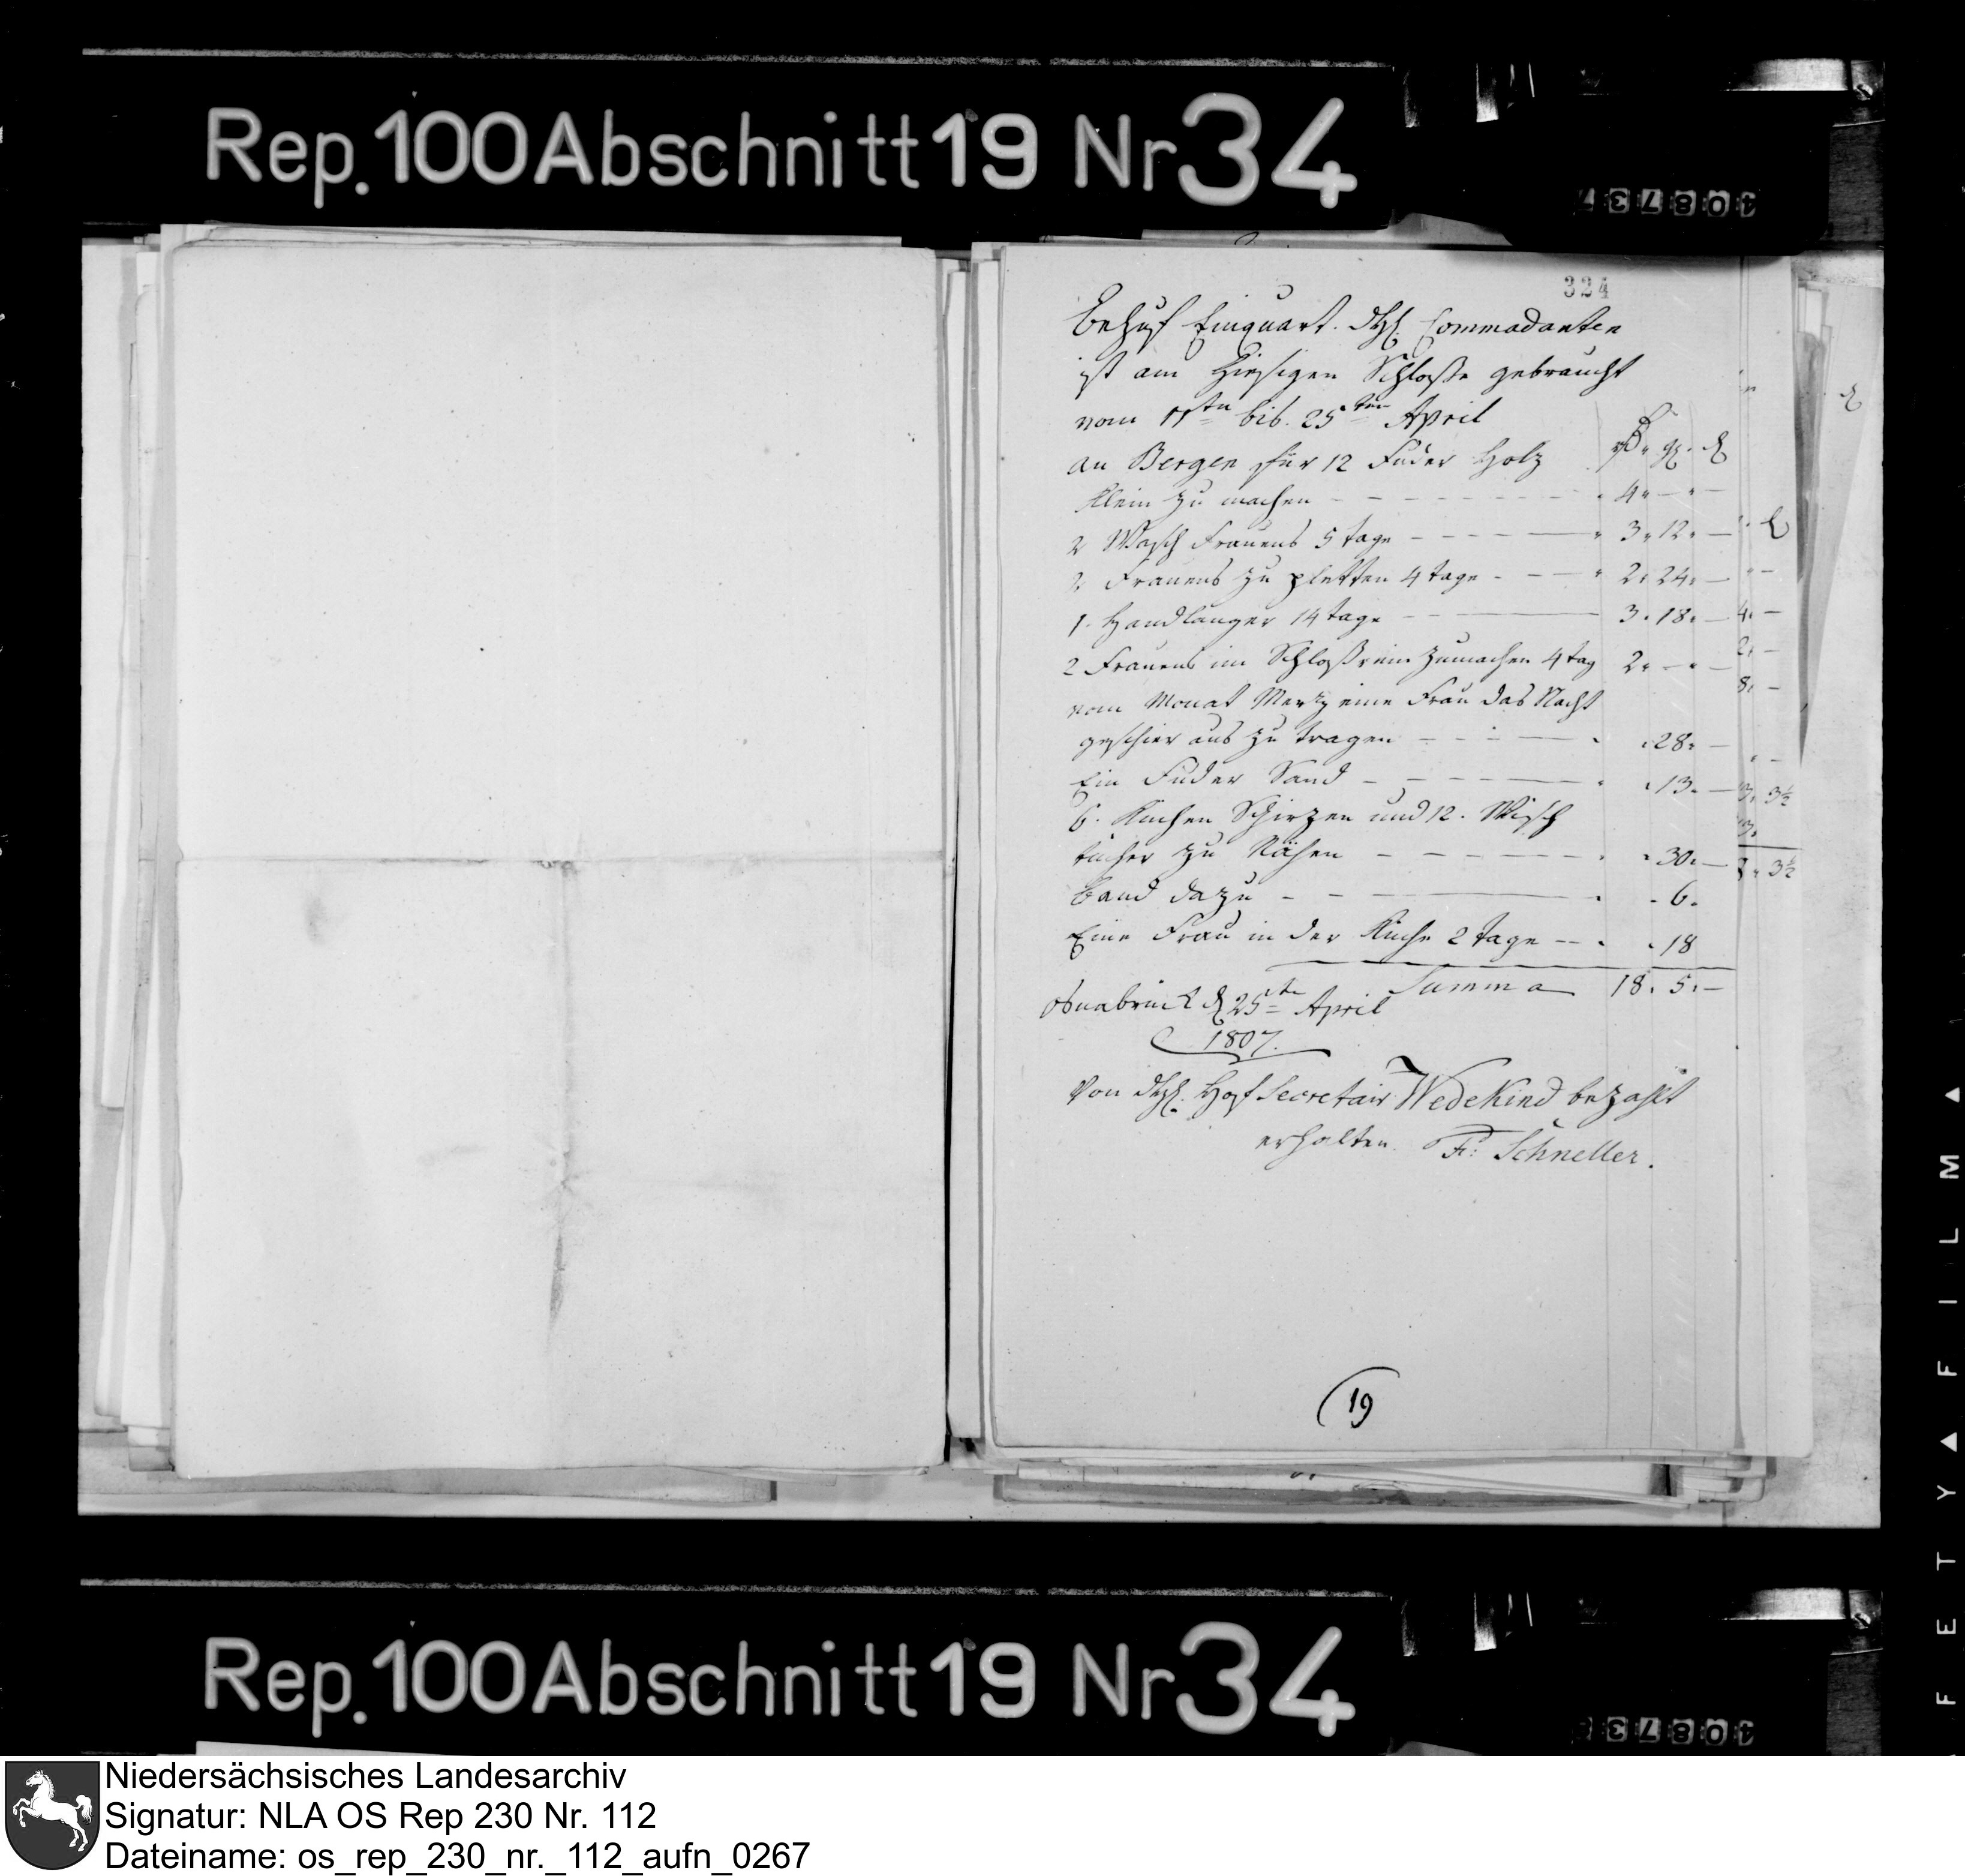 Rep.100Abschnitt19 Nr34
408737
324
Behuf Einquart. Commadanten
ist am Hiesigen Schloße gebraucht
vom 11ten bis 25ten April
an Bergen für 12 Fuder Holz
Klein zu machen - - - 4 " — " —
2 Wasch Frauens 5 tage - - - 3 " 12 " —
2 Frauens zu pletten 4 tage - - - 2 " 24 " —
1. Handlanger 14 tage - - - 3 " 18 " —
2 Frauens im Schloß rein zumachen 4 tag 2 " — " —
vom Monat Mertz eine Frau das Nacht
geschier aus zu tragen - - - " 28 " —
Ein Fuder Sand - - - " 13 " —
6. Küchen Schirzen und 12. Wisch
tücher zu Nähen - - - " 30 " —
Band dazu - - - " 6 "
Eine Frau in der Küche 2 tage - - " 18
Summa 18 " 5 " —
Osnabrück d 25te April
1807.
Von Hof Secretair Wedekind bezahlt
erhalten. Fr: Schneller.
19
Rep.100Abschnitt19 Nr34
408737
FETY▲FILM▲
Niedersächsisches Landesarchiv
Signatur: NLA OS Rep 230 Nr. 112
Dateiname: os_rep_230_nr._112_aufn_0267